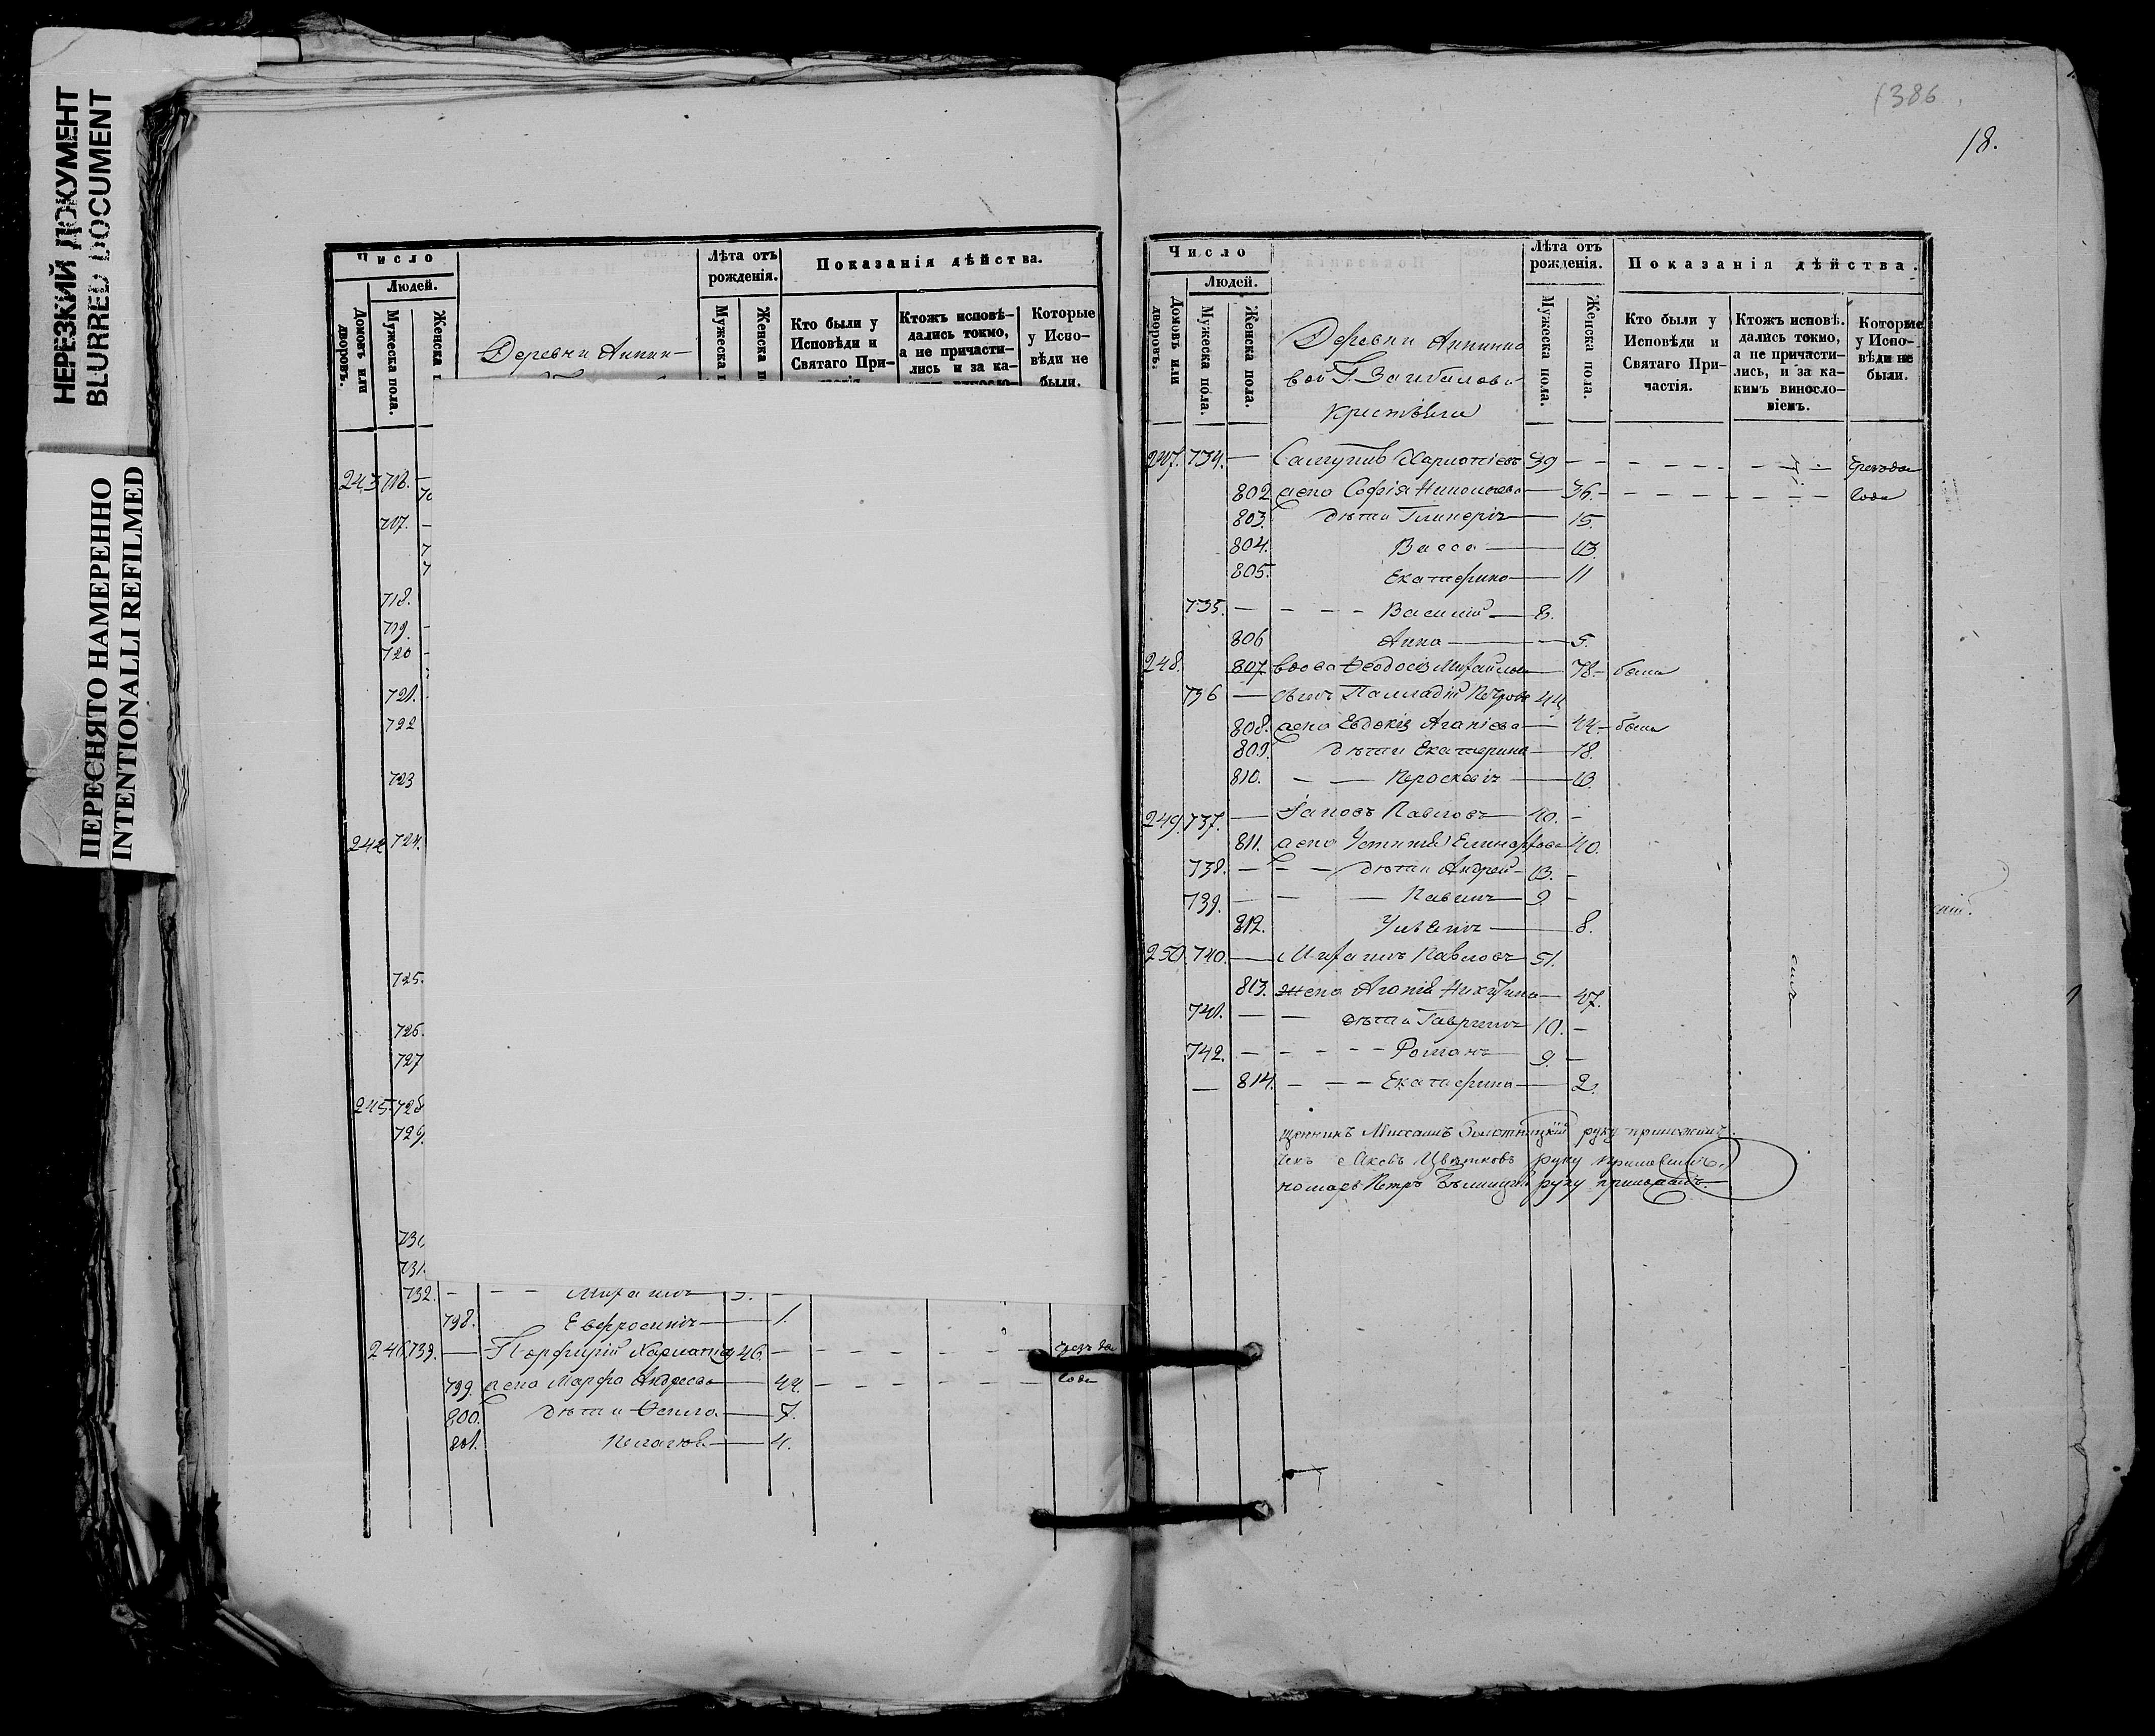 НЕРЕЗКИЙ ДОКУМЕНТ
BLURRED DOCUMENT
ПЕРЕСНЯТО НАМЕРЕННО
INTENTIONALLI REFILMED
Число
Людей.
Домовъ или дворовъ.
Мужеска пола.
Женска
Деревни Аннин-
Лѣта отъ рожденія.
Мужеска
Женска
Показанія дѣйства.
Кто были у Исповѣди и Святаго При-
Ктожъ исповѣ-дались токмо, а не причасти-лись и за ка-
Которые у Испо-вѣди не были.
243 716.
717.
718.
719.
720
721.
722
723
244 724.
725.
726.
727
245 728
729.
730
731.
732. — Михаилъ 3.
798. Евфросинія 1.
246 733. — Порфирий Харлапіев 46.
799. жена Марфа Андреева 42.
года
800. дѣти Фекла 7.
801. Пелагея 4.
1386
18.
Число
Людей.
Домовъ или дворовъ.
Мужеска пола.
Женска пола.
Деревни Аннино
вой Г.
крестьяне
Лѣта отъ рожденія.
Мужеска пола.
Женска пола.
Показанія дѣйства.
Кто были у Исповѣди и Святаго При-частія.
Ктожъ исповѣ. дались токмо, а не причасти-лись, и за ка-кимъ виносло-віемъ.
Которые у Испо-вѣди не были.
247. 734. — Харлапіевъ 39
802 жена Софія Николаева 36. года
803. дѣти Гликерія 15.
804. Васса 13.
805. Екатерина 11
735. — Василій 8.
806 Анна 5.
248. 807. вдова Феодосія Михайлова 78. была
736 — сынъ Палладій Петровъ 44
808. жена Евдокія Агапіева 44. была
809. дѣти Екатерина 18.
810. — Параскевія 13.
249. 737. — Іаковъ Павловъ 40.
811. жена 40.
738. — дѣти Андрей 13.
739. — Павелъ 9.
812. Уліянія 8.
250. 740. — Михаилъ Павловъ 51.
813. жена Агапія Никитина 47.
741. — дѣти Гавріилъ 10.
742. — Романъ 9.
814. — Екатерина 2.
щенникъ Миссаилъ Золотницкій руку приложилъ.
Цвѣтковъ руку приложилъ.
номарь Петръ руку приложилъ.